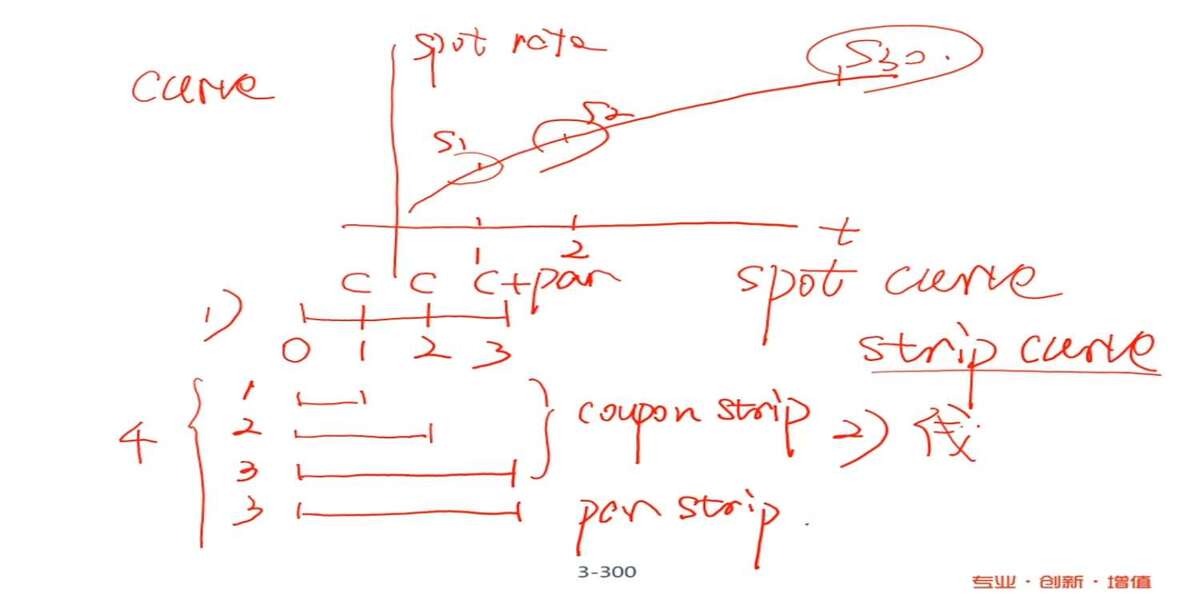 spot rate
curve
S1
S2
S30.
t
1 2
spot curve
strip curve
1)
C C C+par
0 1 2 3
4
1
2
3
3
coupon strip
par strip.
2)
3-300
专业·创新·增值